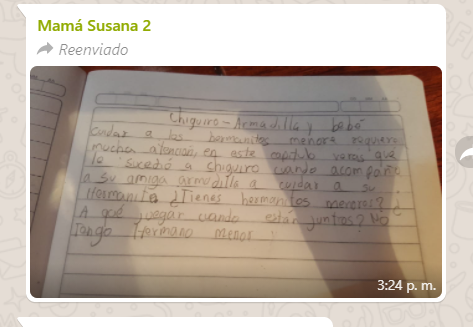 Mamá Susana 2
Reenviado
Chiguiro - Armadillo y bebé
cuidar a los hermanitos menore requiere
mucha atencion, en este capitulo veras que
le sucedió a chiguiro cuando acompaña
a su amiga armadilla a cuidar a su
Hermanito ¿Tienes hermanitos menores? ¿
A qué juegar cuando están juntros? No
Tango Hermano menor
3:24 p. m.